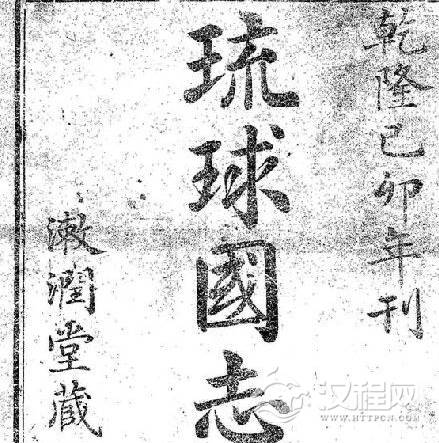 乾隆己卯年刊
琉球國志
漱潤堂蔵
汉程网
WWW.HTTPCN.COM